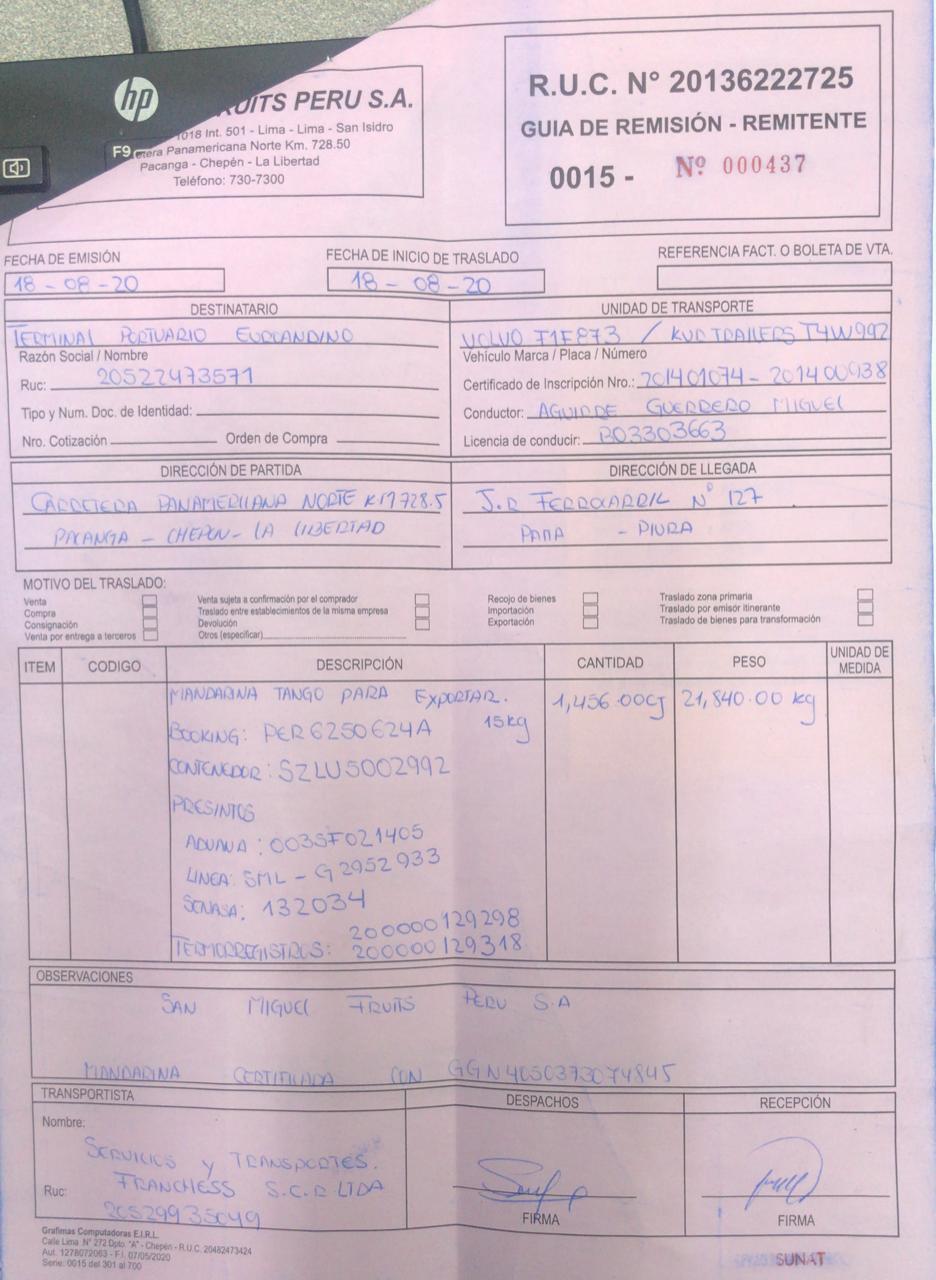 hp
F9
RUITS PERU S.A.
1018 Int. 501 - Lima - Lima - San Isidro
etera Panamericana Norte Km. 728.50
Pacanga - Chepén - La Libertad
Teléfono: 730-7300
R.U.C. N° 20136222725
GUIA DE REMISIÓN - REMITENTE
0015 - Nº 000437
FECHA DE EMISIÓN
18 - 08 - 20
FECHA DE INICIO DE TRASLADO
18 - 08 - 20
REFERENCIA FACT. O BOLETA DE VTA.
DESTINATARIO
TERMINAL PORTUARIO EUROANDINO
Razón Social / Nombre
Ruc: 20522473571
Tipo y Num. Doc. de Identidad:
Nro. Cotización Orden de Compra
UNIDAD DE TRANSPORTE
VOLVO T1F873 / KVR TRAILERS T4W992
Vehículo Marca / Placa / Número
Certificado de Inscripción Nro.: 201401074 - 201400938
Conductor: AGUIRRE GUERRERO MIGUEL
Licencia de conducir: B03303663
DIRECCIÓN DE PARTIDA
CARRETERA PANAMERICANA NORTE KM 728.5
PACANGA - CHEPEN - LA LIBERTAD
DIRECCIÓN DE LLEGADA
J.R FERROCARRIL N° 127
PAITA - PIURA
MOTIVO DEL TRASLADO:
Venta
Compra
Consignación
Venta por entrega a terceros
Venta sujeta a confirmación por el comprador
Traslado entre establecimientos de la misma empresa
Devolución
Otros (especificar)
Recojo de bienes
Importación
Exportación
Traslado zona primaria
Traslado por emisor itinerante
Traslado de bienes para transformación
ITEM CODIGO DESCRIPCIÓN CANTIDAD PESO UNIDAD DE MEDIDA
MANDARINA TANGO PARA EXPORTAR. 1,456.00CJ 21,840.00 kg
15kg
BOOKING: PER6250624A
CONTENEDOR: SZLU5002992
PRESINTOS
ADUANA: 003SF021405
LINEA: SML - G2952933
SENASA: 132034
200000129298
TERMORREGISTROS: 200000129318
OBSERVACIONES
SAN MIGUEL FRUITS PERU S.A
MANDARINA CERTIFICADA CON GGN4050373074845
TRANSPORTISTA
Nombre:
SERVICIOS y TRANSPORTES.
FRANCHESS S.C.R LTDA
Ruc: 20529935049
DESPACHOS
FIRMA
RECEPCIÓN
FIRMA
Grafimas Computadoras E.I.R.L.
Calle Lima N° 272 Dpto. "A" - Chepén - R.U.C. 20482473424
Aut. 1278072063 - F.I. 07/05/2020
Serie: 0015 del 301 al 700
SUNAT